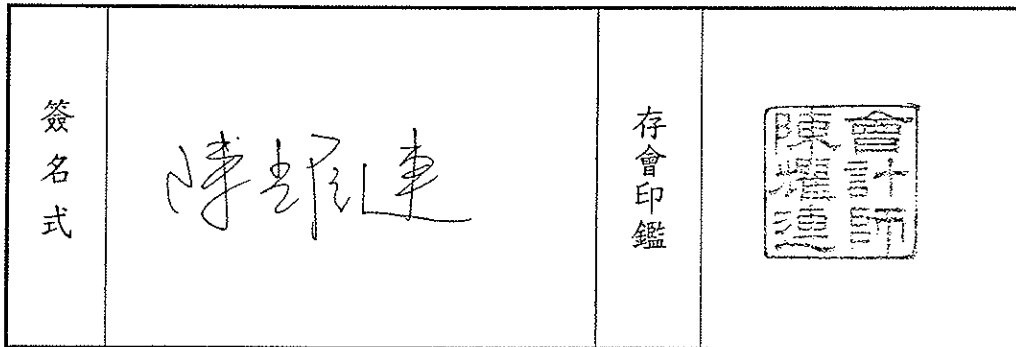 簽名式
陳耀連
存會印鑑
會計師
陳耀連